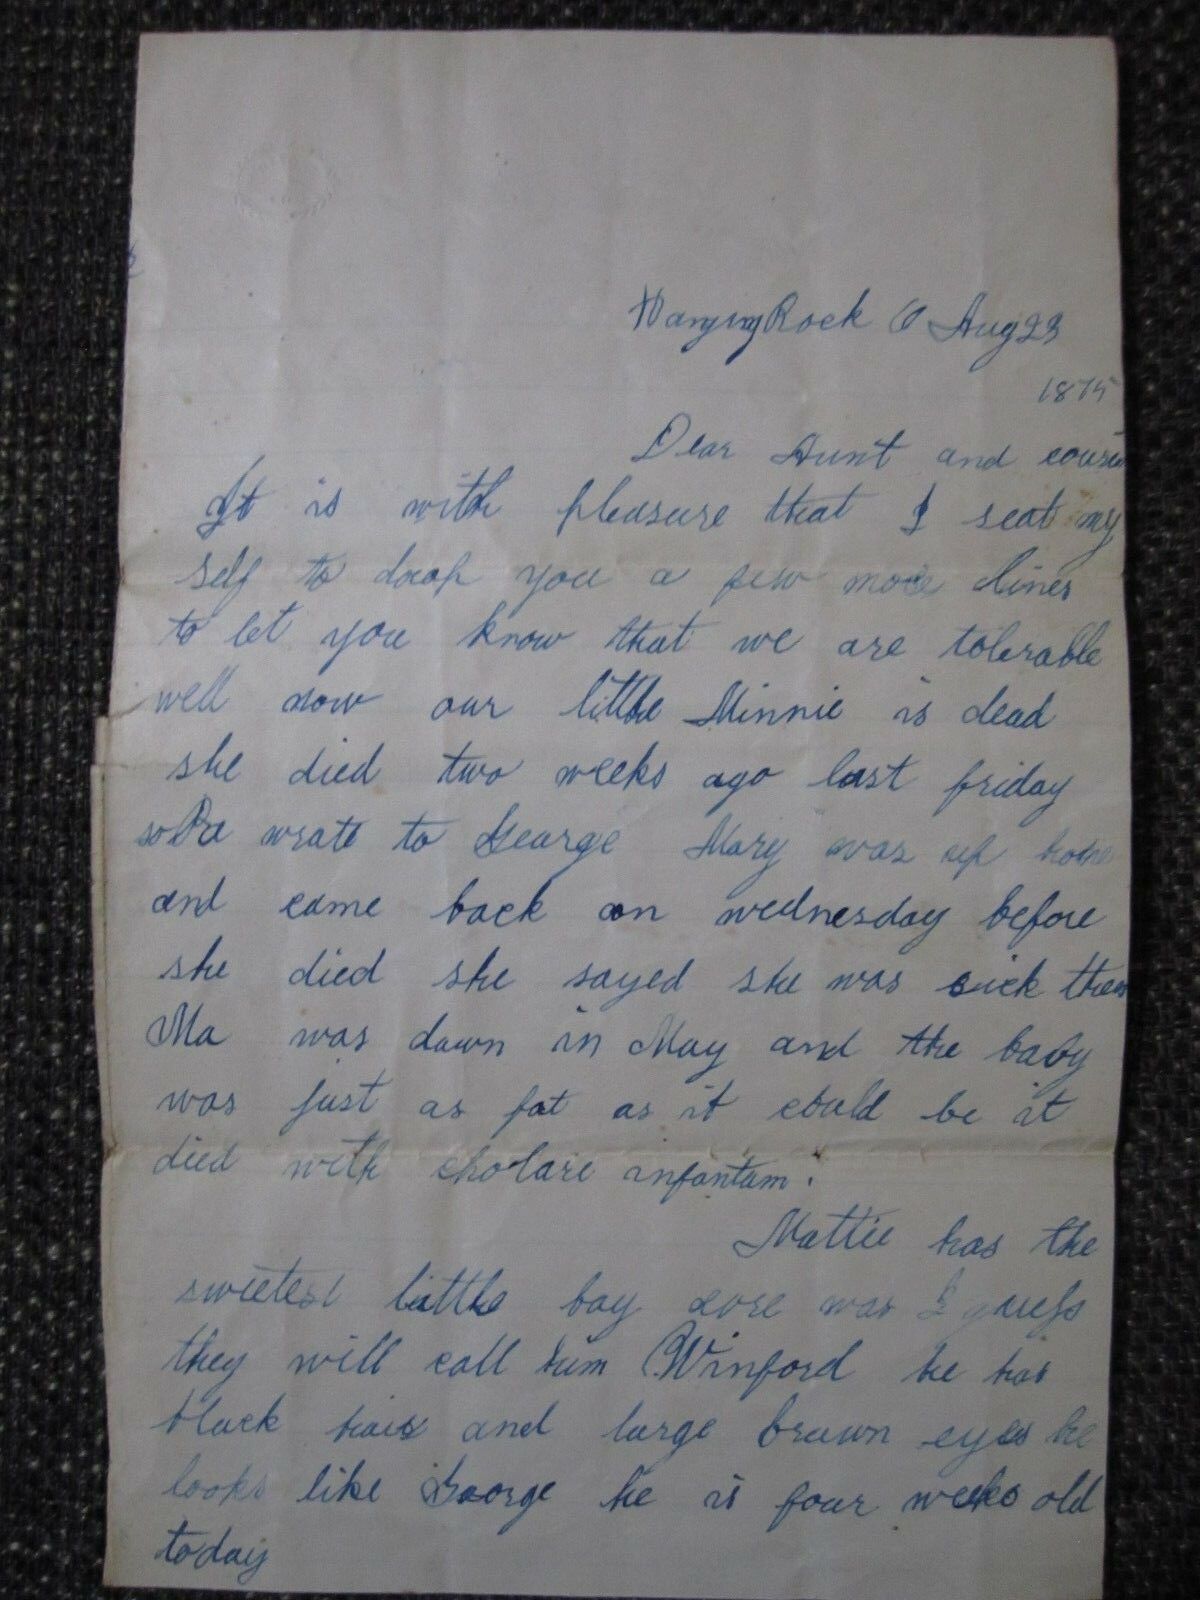 Hanging Rock O Aug 23
1875
Dear Aunt and cousin
It is with pleasure that I seat my
self to drop you a few more lines
to let you know that we are tolerable
well now our little Minnie is dead
she died two weeks ago last friday
so Pa wrate to George Mary was up home
and came back on wednesday before
she died she sayed she was sick then
Ma was dawn in May and the baby
was just as fat as it could be it
died with cholare infantum.
Mattie has the
sweetest little boy ever was I guess
they will call him Winford he has
black hair and large brawn eyes he
looks like George he is four weeks old
today